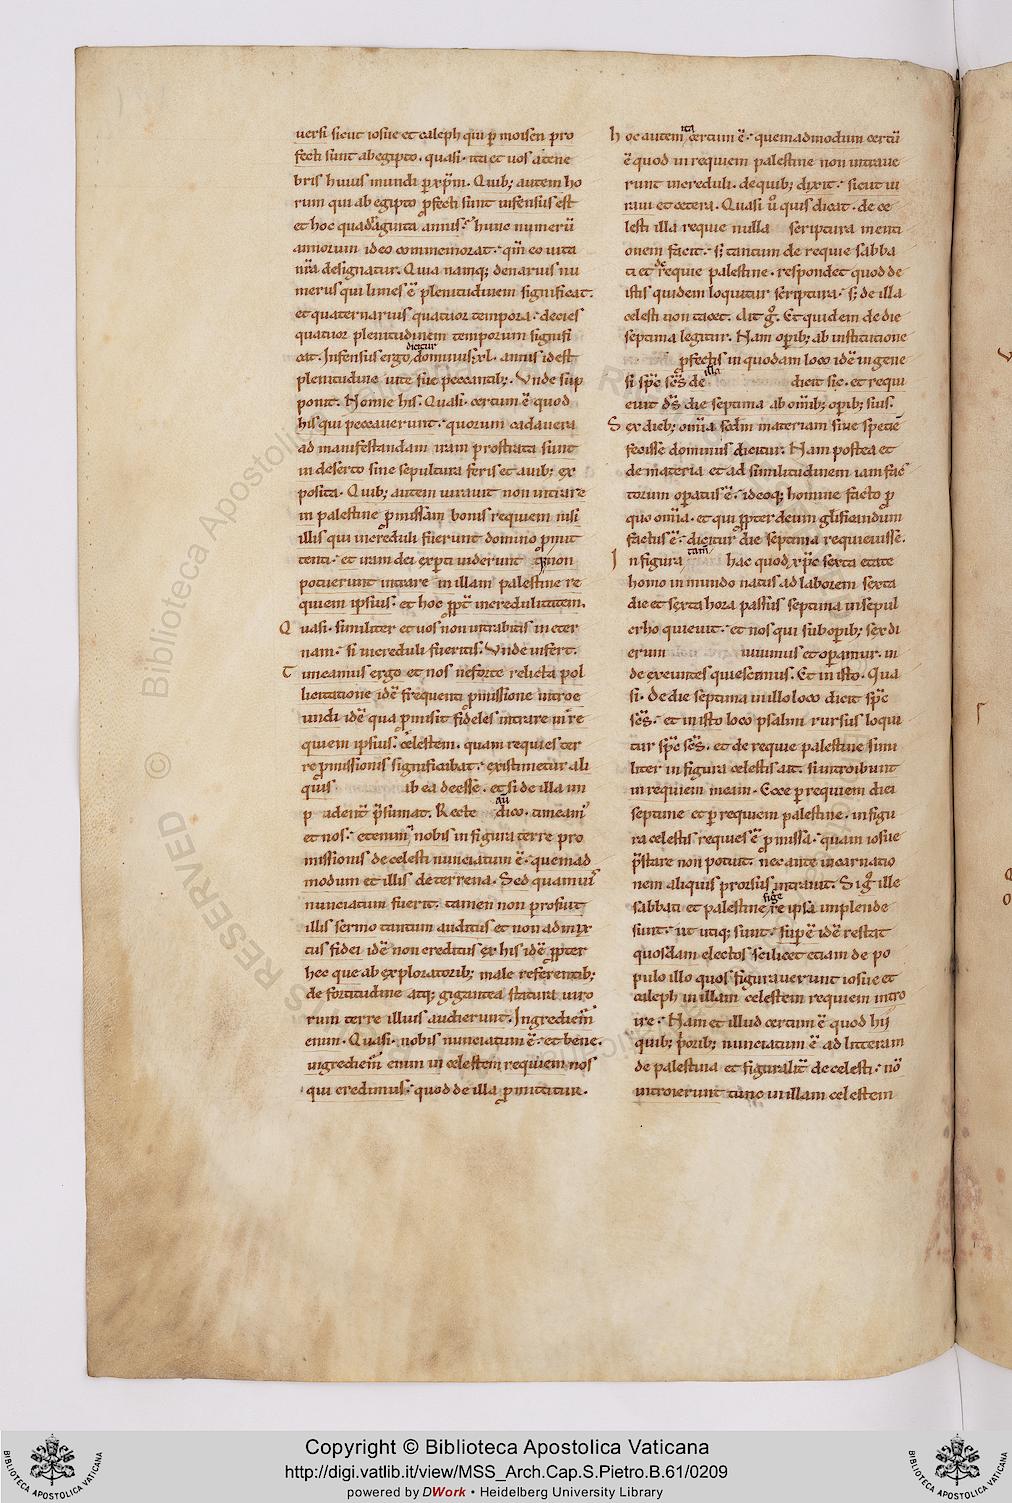 uersi sicut iosue et caleph qui p̄ moisen pro
fecti sunt ab egipto. quasi. ita et uos a tene
bris huius mundi p xp̄m. Quib; autem ho
rum qui ab egipto ꝓfecti sunt infensus est
et hoc quadraginta annis. hunc numerū
annorum ideo commemorat. qm̄ eo uita
nr̄a designatur. Quia namq; denarius nu
merus qui limes ē plenitudinem significat.
et quaternarius quatuor tempora. decies
quatuor plenitudinem temporum signifi
cat. Infensus ergo dicitur dominus. xl. annis id est
plenitudine uite sue peccantib;. Unde sup
ponit. Nonne his. Quasi. certum ē quod
his qui peccauerunt. quorum cadauera
ad manifestandam iram prostrata sunt
in deserto sine sepultura feris et auib; ex
posita. Quib; autem iurauit non intrare
in palestine ꝓmissam bonis requiem nisi
illis qui increduli fuerunt domino ꝓmit
tenti. et iram dei expti uiderunt non
potuerunt intrare in illam palestine re
quiem ipsius. et hoc ꝓpt̄ incredulitatem.
Quasi. similiter et uos non intrabitis in eter
nam. si increduli fueritis. Unde infert.
Timeamus ergo et nos ne forte relicta pol
licitatione idē frequenti ꝓmissione introe
undi idē qua ꝓmisit fideles intrare in re
quiem ipsius. celestem. quam requies ter
re ꝓmissionis significabat. existimetur ali
quis ab ea deesse. et si de illa im
p adent̄ p̄sumat. Recte aū dico. timeam᷒
et nos. etenim nobis in figura terre pro
missionis de celesti nunciatum ē. quemad
modum et illis de terrena. Sed quamuis
nunciatum fuerit. tamen non profuit
illis sermo tantum auditus et non admix
tus fidei idē non creditus ex his idē ꝓpter
hec que ab exploratorib; male referentib;
de fortitudine atq; gigantea statura uiro
rum terre illius audierunt. Ingrediem̄
enim. Quasi. nobis nunciatum ē. et bene.
ingrediem̄ enim in celestem requiem nos
qui credimus. quod de illa ꝓmittitur.
hoc autem ita certum ē. quemadmodum certū
ē quod in requiem palestine non intraue
runt increduli. de quib; dixit. sicut iu
raui et cetera. Quasi ū quis dicat. de ce
lesti illa requie nulla scriptura menti
onem facit. s; tantum de requie sabba
ti et de requie palestine. respondet quod de
istis quidem loquitur scriptura. s; de illa
celesti non tacet. Ait g̊. Et quidem de die
septima legitur. Nam opib; ab institutione
ꝓfectis in quodam loco idē in gene
si sp̄c sc̄s de illa dicit sic. et requi
euit ds̄ die septima ab om̄ib; opib; suis.
Sex dieb; om̄ia scdm materiam siue spetiē
fecisse dominus dicitur. Nam postea et
de materia et ad similitudinem iam fac
torum opatus ē. ideoq; homine facto p
quo om̄ia. et qui ꝓpter deum glificandum
factus ē. dicitur die septima requieuisse.
In figura tam hac quod xp̄c sexta etate
homo in mundo natus ad laborem sexta
die et sexta hora passus septima in sepul
cro quieuit. et nos qui sub opib; sex di
erum uiuimus et opamur. in
de exeuntes quiescimus. Et in isto. Qua
si. de die septima in illo loco dicit sp̄c
sc̄s. et in isto loco psalmi rursus loqui
tur sp̄c sc̄s. et de requie palestine simi
liter in figura celestis ait. si introibunt
in requiem meam. Ecce p requiem diei
septime et p requiem palestine. in figu
ra celestis requies ē ꝓmissa. quam iosue
p̄stare non potuit. nec ante incarnatio
nem aliquis prorsus intrauit. Si g̊ ille
sabbati et palestine fig̅e re ipsa implende
sunt. ut utiq; sunt. sup ē idē restat
quosdam electos scilicet etiam de po
pulo illo quos figurauerunt iosue et
caleph in illam celestem requiem intro
ire. Nam et illud certum ē quod hij
quib; p̄orib; nunciatum ē ad litteram
de palestina et figuralit̄ de celesti. nō
introierunt tunc in illam celestem
Copyright © Biblioteca Apostolica Vaticana
http://digi.vatlib.it/view/MSS_Arch.Cap.S.Pietro.B.61/0209
powered by DWork • Heidelberg University Library
BIBLIOTECA APOSTOLICA VATICANA
BIBLIOTECA APOSTOLICA VATICANA